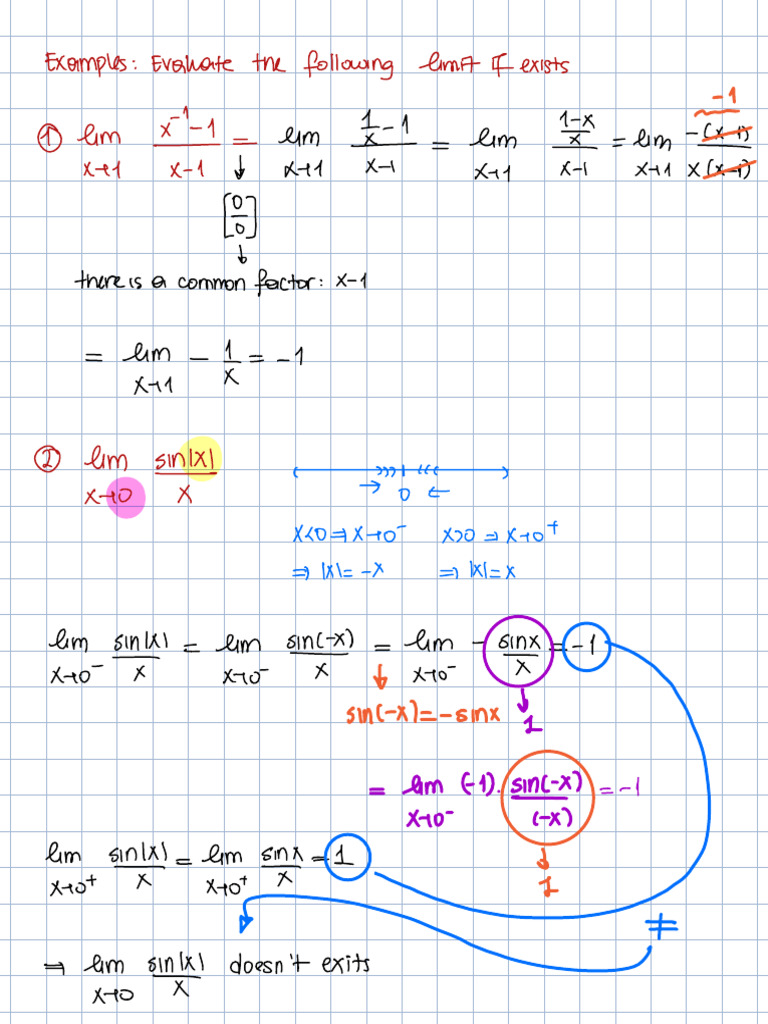 Examples: Evaluate the following limit if exists
① lim x→1 (x^-1 - 1)/(x-1) = lim x→1 (1/x - 1)/(x-1) = lim x→1 ((1-x)/x)/(x-1) = lim x→1 -(x-1)/(x(x-1))
-1
↓
[0/0]
↓
there is a common factor: x-1
= lim x→1 - 1/x = -1
② lim x→0 sin|x|/x
→ 0 ←
x<0 ⇒ x→0^- x>0 ⇒ x→0^+
⇒ |x| = -x ⇒ |x| = x
lim x→0^- sin|x|/x = lim x→0^- sin(-x)/x = lim x→0^- - sinx/x = -1
↓ ↓
sin(-x) = -sinx 1
= lim x→0^- (-1). sin(-x)/(-x) = -1
lim x→0^+ sin|x|/x = lim x→0^+ sinx/x = 1
↓
1
≠
⇒ lim x→0 sin|x|/x doesn't exits